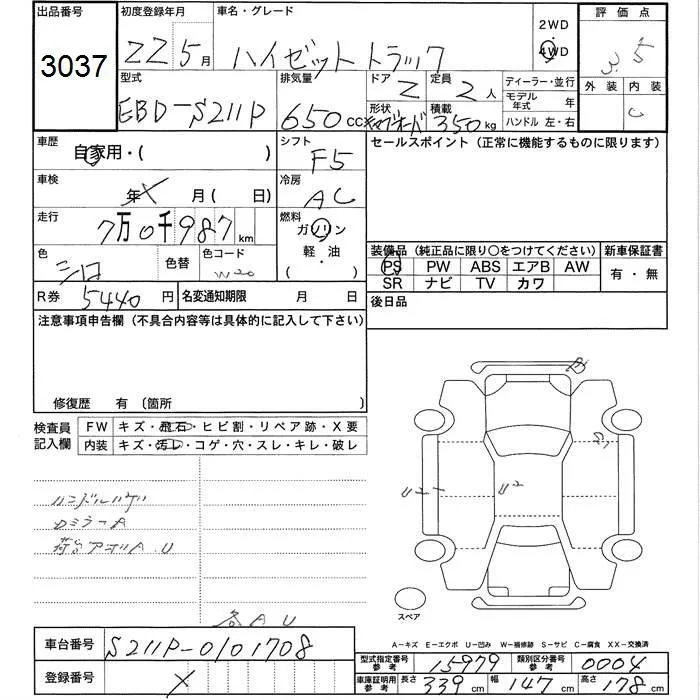 出品番号 初度登録年月 車名・グレード 2WD 4WD 評価点
3037 22 5月 ハイゼットトラック 3.5
型式 排気量 ドア 2 定員 2人 ディーラー・並行 外装 内装
EBD-S211P 650cc 形状 積載 350kg モデル年式 年 C
ハンドル 左・右
車歴 自家用・( ) シフト F5 セールスポイント (正常に機能するものに限ります)
車検 年 X 月( 日) 冷房 AC
走行 7万0千987km 燃料 ガソリン
軽・油
( )
色 シロ 色替 色コード W20
装備品 (純正品に限り○をつけてください) 新車保証書
PS PW ABS エアB AW 有・無
SR ナビ TV カワ
R券 5440円 名変通知期限 月 日 後日品
注意事項申告欄 (不具合内容等は具体的に記入して下さい)
修復歴 有 (箇所
検査員記入欄 FW キズ・飛石・ヒビ割・リペア跡・X要
内装 キズ・汚レ・コゲ・穴・スレ・キレ・破レ
ハンドルハゲ
A
A.U
各AU
U2
スペア
A−キズ E−エクボ U−凹み W−補修跡 S−サビ C−腐食 XX−交換済
車台番号 S211P-0101708
登録番号 X
型式指定番号 参考 15979 類別区分番号 参考 0004
車庫証明用 参考 長さ 339cm 幅 147cm 高さ 178cm